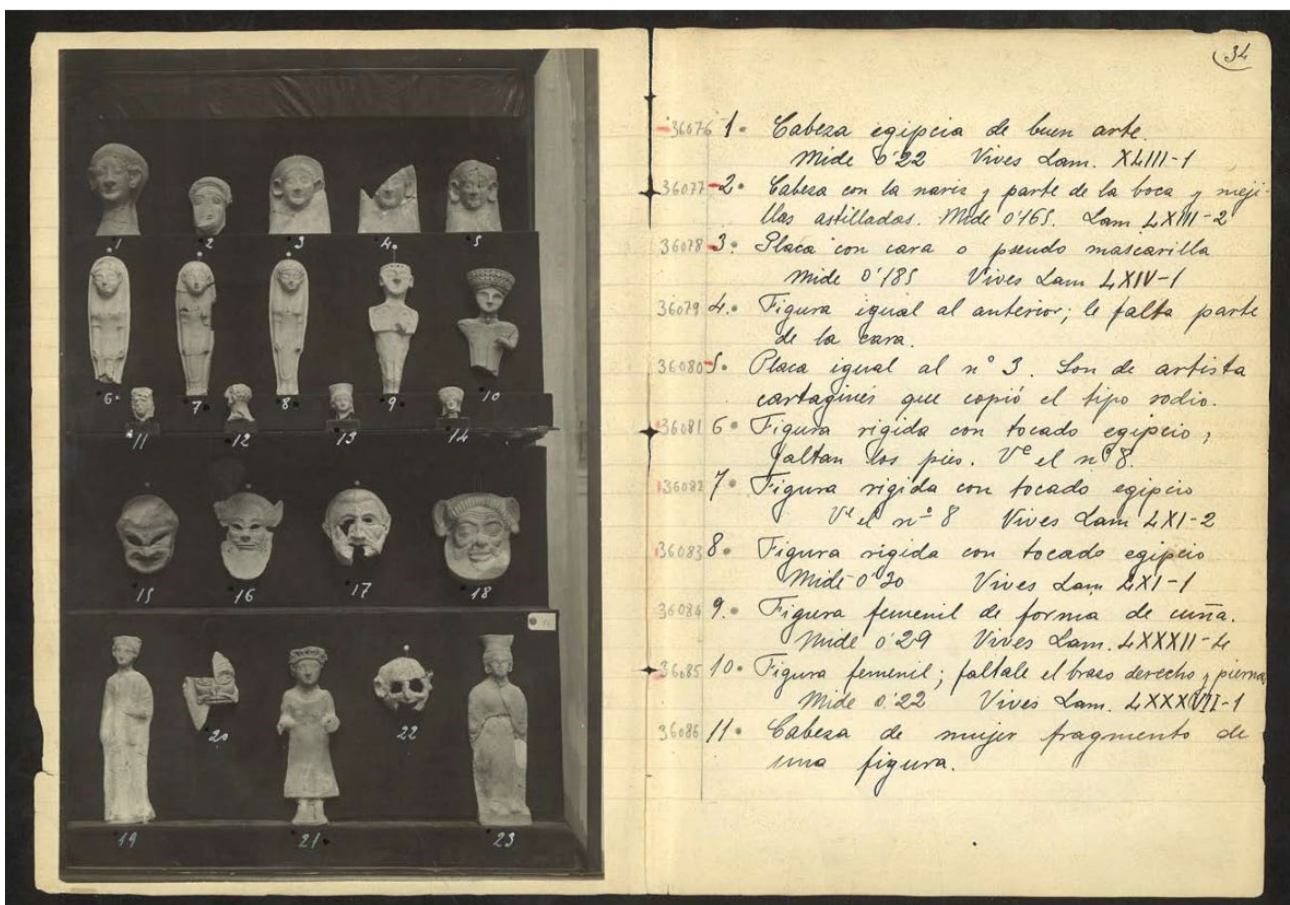 34
1 2 3 4 5
6 7 8 9 10
11 12 13 14
15 16 17 18
19 20 21 22 23
36076 1. Cabeza egipcia de buen arte.
Mide 0'22 Vives Lam. XLIII-1
36077 2. Cabeza con la nariz y parte de la boca y meji-
llas astilladas. Mide 0'165. Lam LXIII-2
36078 3. Placa con cara o pseudo mascarilla
Mide 0'185 Vives Lam LXIV-1
36079 4. Figura igual al anterior; le falta parte
de la cara.
36080 5. Placa igual al nº 3. Son de artista
cartaginés que copió el tipo rodio.
36081 6. Figura rigida con tocado egipcio,
faltan los pies. Vᵉ el nº 8.
36082 7. Figura rigida con tocado egipcio
Vᵉ el nº 8 Vives Lam LXI-2
36083 8. Figura rigida con tocado egipcio
Mide 0'30 Vives Lam LXI-1
36084 9. Figura femenil de forma de cuña.
Mide 0'29 Vives Lam. LXXXII-4
36085 10. Figura femenil; faltale el brazo derecho y piernas
Mide 0'22 Vives Lam. LXXXVII-1
36086 11. Cabeza de mujer fragmento de
una figura.